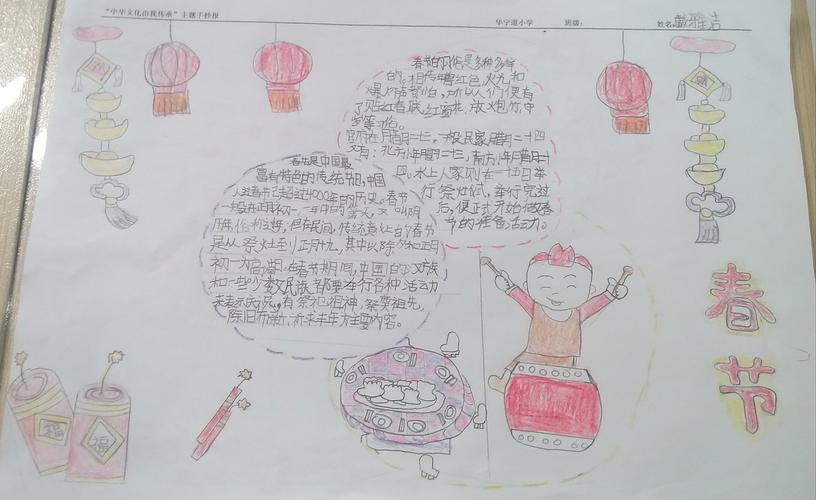 “中华文化由我传承”主题手抄报 华宁道小学 班级： 姓名：
福
福
春节的风俗是多种多样
的。相传年兽怕红色，火光和
爆炸声，所以人们便有
了贴红春联，红窗花，放炮竹，守
岁等习俗。
官府在腊月二十三，一般民家腊月二十四
又有：北方小年腊月二十三，南方小年腊月二十
四，水上人家则在二十五日举
行祭灶仪式，举行完过
后，便正式开始做春
节的准备活动。
春节是中国最
富有特色的传统节日，中国
人过春节已超过4000年的历史。春节
一般在正月初一，年中的第一天，又叫阴
历年，俗称过年，但在民间，传统意义上的春节
是从祭灶到正月十九，其中以除夕和正月
初一为高潮。在春节期间，中国的汉族
和一些少数民族都要举行各种活动
来表示庆祝，有祭祀祖神，祭奠祖先，
除旧布新，祈求丰年为主要内容。
春节
福
福